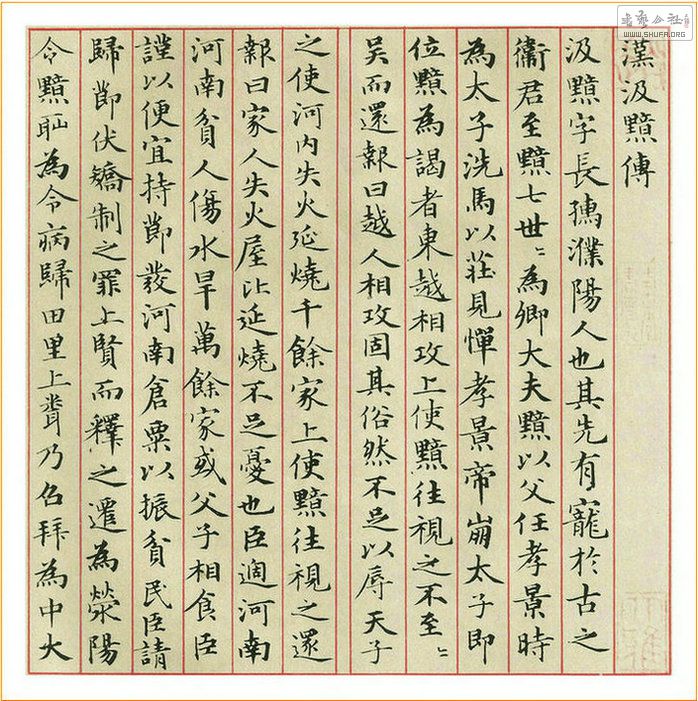 漢汲黯傳
汲黯字長孺濮陽人也其先有寵於古之
衞君至黯七世〻為卿大夫黯以父任孝景時
為太子洗馬以莊見憚孝景帝崩太子即
位黯為謁者東越相攻上使黯往視之不至〻
吳而還報曰越人相攻固其俗然不足以辱天子
之使河內失火延燒千餘家上使黯往視之還
報曰家人失火屋比延燒不足憂也臣適河南
河南貧人傷水旱萬餘家或父子相食臣
謹以便宜持節發河南倉粟以振貧民臣請
歸節伏矯制之罪上賢而釋之遷為滎陽
令黯耻為令病歸田里上聞乃召拜為中大
書藝公社
WWW.SHUFR.ORG